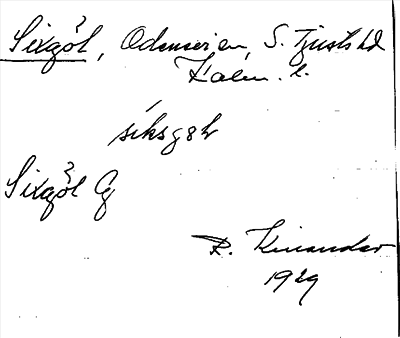 Sixgöl, Odensvien, S. Tjusts hd
Kalm. l.
síksgöl
Sixgöl Gg
R. Kinander
1929